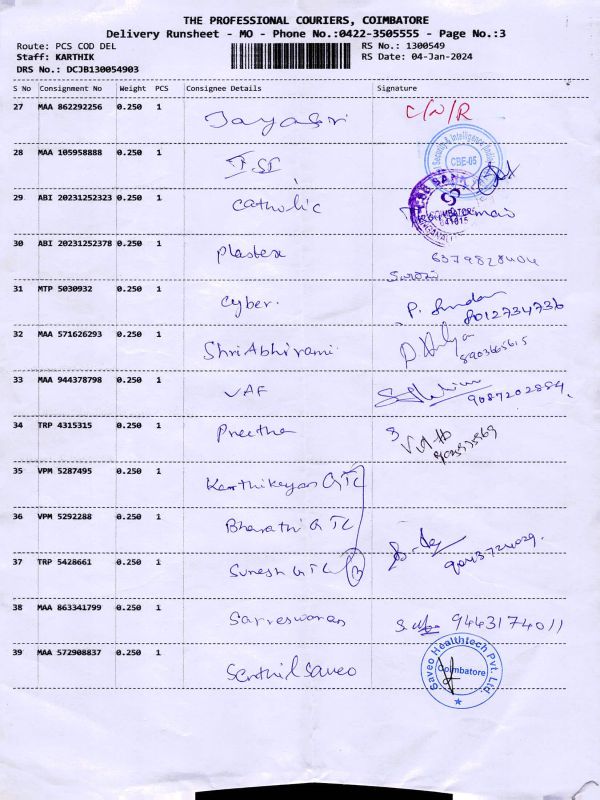 THE PROFESSIONAL COURIERS, COIMBATORE
Delivery Runsheet - MO - Phone No.:0422-3505555 - Page No.:3
Route: PCS COD DEL
RS No.: 1300549
Staff: KARTHIK
RS Date: 04-Jan-2024
DRS No.: DCJB130054903
S No Consignment No Weight PCS Consignee Details Signature
27 MAA 862292256 0.250 1 Jayasri C/N/R
28 MAA 105958888 0.250 1 Security & Intelligence CBE-05
29 ABI 20231252323 0.250 1 Catholic BANK COIMBATORE 641015
30 ABI 20231252378 0.250 1 Plastex 6379828404
Saroji
31 MTP 5030932 0.250 1 Cyber. P. Sundar
8012734736
32 MAA 571626293 0.250 1 Shri Abhirami 8903665615
33 MAA 944378798 0.250 1 VAF 9087202884
34 TRP 4315315 0.250 1 Preetha
35 VPM 5287495 0.250 1 Karthikeyan GTL
36 VPM 5292288 0.250 1 Bharathi GTL
37 TRP 5428661 0.250 1 Suresh GTL 3
38 MAA 863341799 0.250 1 Sarveswaran 9443174011
39 MAA 572908837 0.250 1 Senthil Saveo Saveo Healthtech Pvt. Ltd. Coimbatore